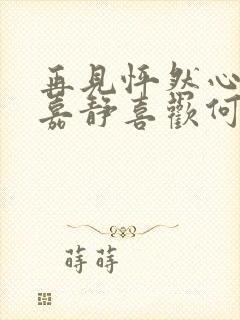 再見怦然心
嘉靜喜歡何
蒔蒔